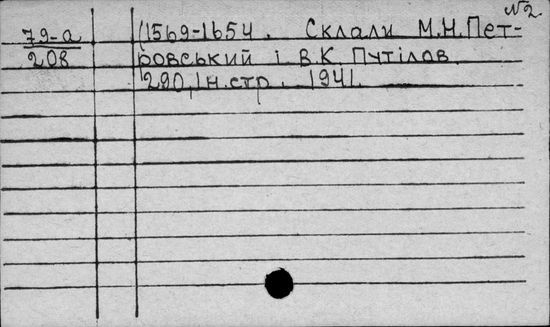 №2
79-а (1569-1654. Склали М.Н.Пет-
208 ровський і В.К. Путілов.
290,1н.стр. 1941.